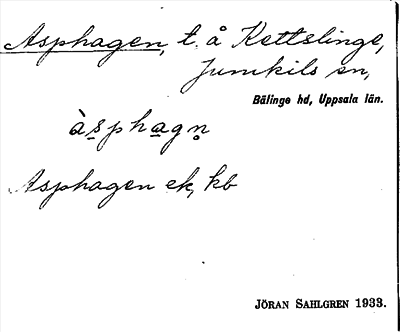 Asphagen, t. å Kettslinge,
Jumkils sn,
Bälinge hd, Uppsala län.
àsphagn̥
Asphagen ek, kb
JÖRAN SAHLGREN 1933.